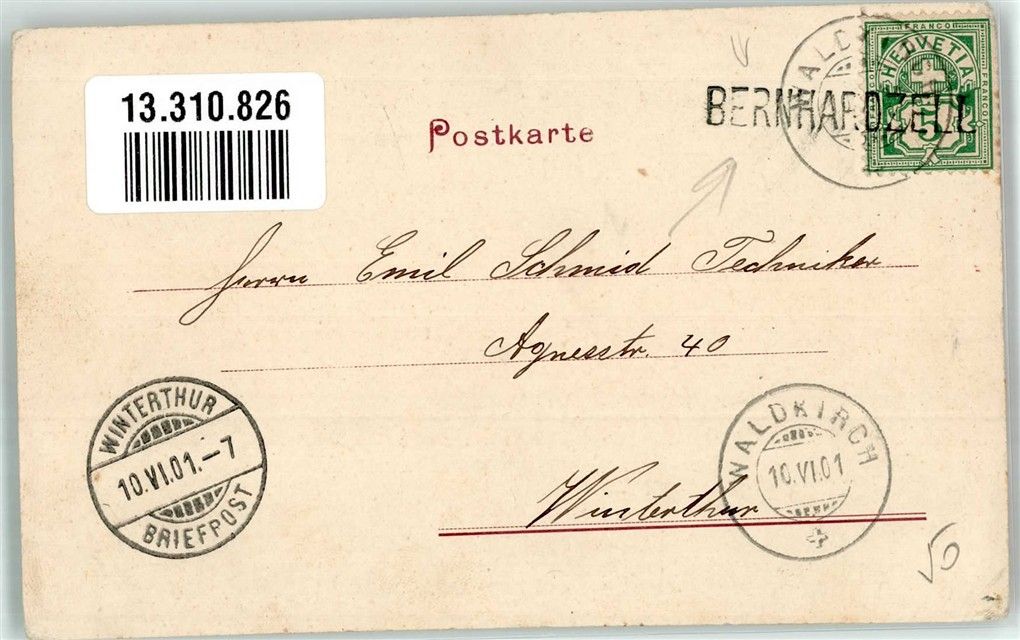 13.310.826
Postkarte
WALDKIRCH
BERNHARDZELL
FRANCO
HELVETIA
FRANCO
FRANCO
5
Herrn Emil Schmid Techniker
Agnesstr. 40
Winterthur
WINTERTHUR
10.VI.01.-7
BRIEFPOST
WALDKIRCH
10.VI.01
50